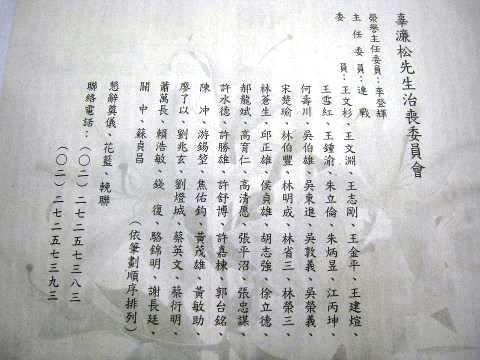 辜濂松先生治喪委員會
榮譽主任委員：李登輝
主任委員：連戰
委員：王文杉、王文淵、王志剛、王金平、王建煊、
王雪紅、王鍾渝、朱立倫、朱炳昱、江丙坤、
何壽川、吳伯雄、吳東進、吳敦義、吳榮義、
宋楚瑜、林伯豐、林明成、林省三、林榮三、
林蒼生、邱正雄、侯貞雄、胡志強、徐立德、
郝龍斌、高育仁、高清愿、張平沼、張忠謀、
許水德、許勝雄、許舒博、許嘉棟、郭台銘、
陳冲、游錫堃、焦佑鈞、黃茂雄、黃敏助、
廖了以、劉兆玄、劉燈城、蔡英文、蔡衍明、
蕭萬長、賴浩敏、錢復、駱錦明、謝長廷、
關中、蘇貞昌
（依筆劃順序排列）
懇辭奠儀、花籃、輓聯
聯絡電話：（〇二）二七二五七三八三
（〇二）二七二五七三九三